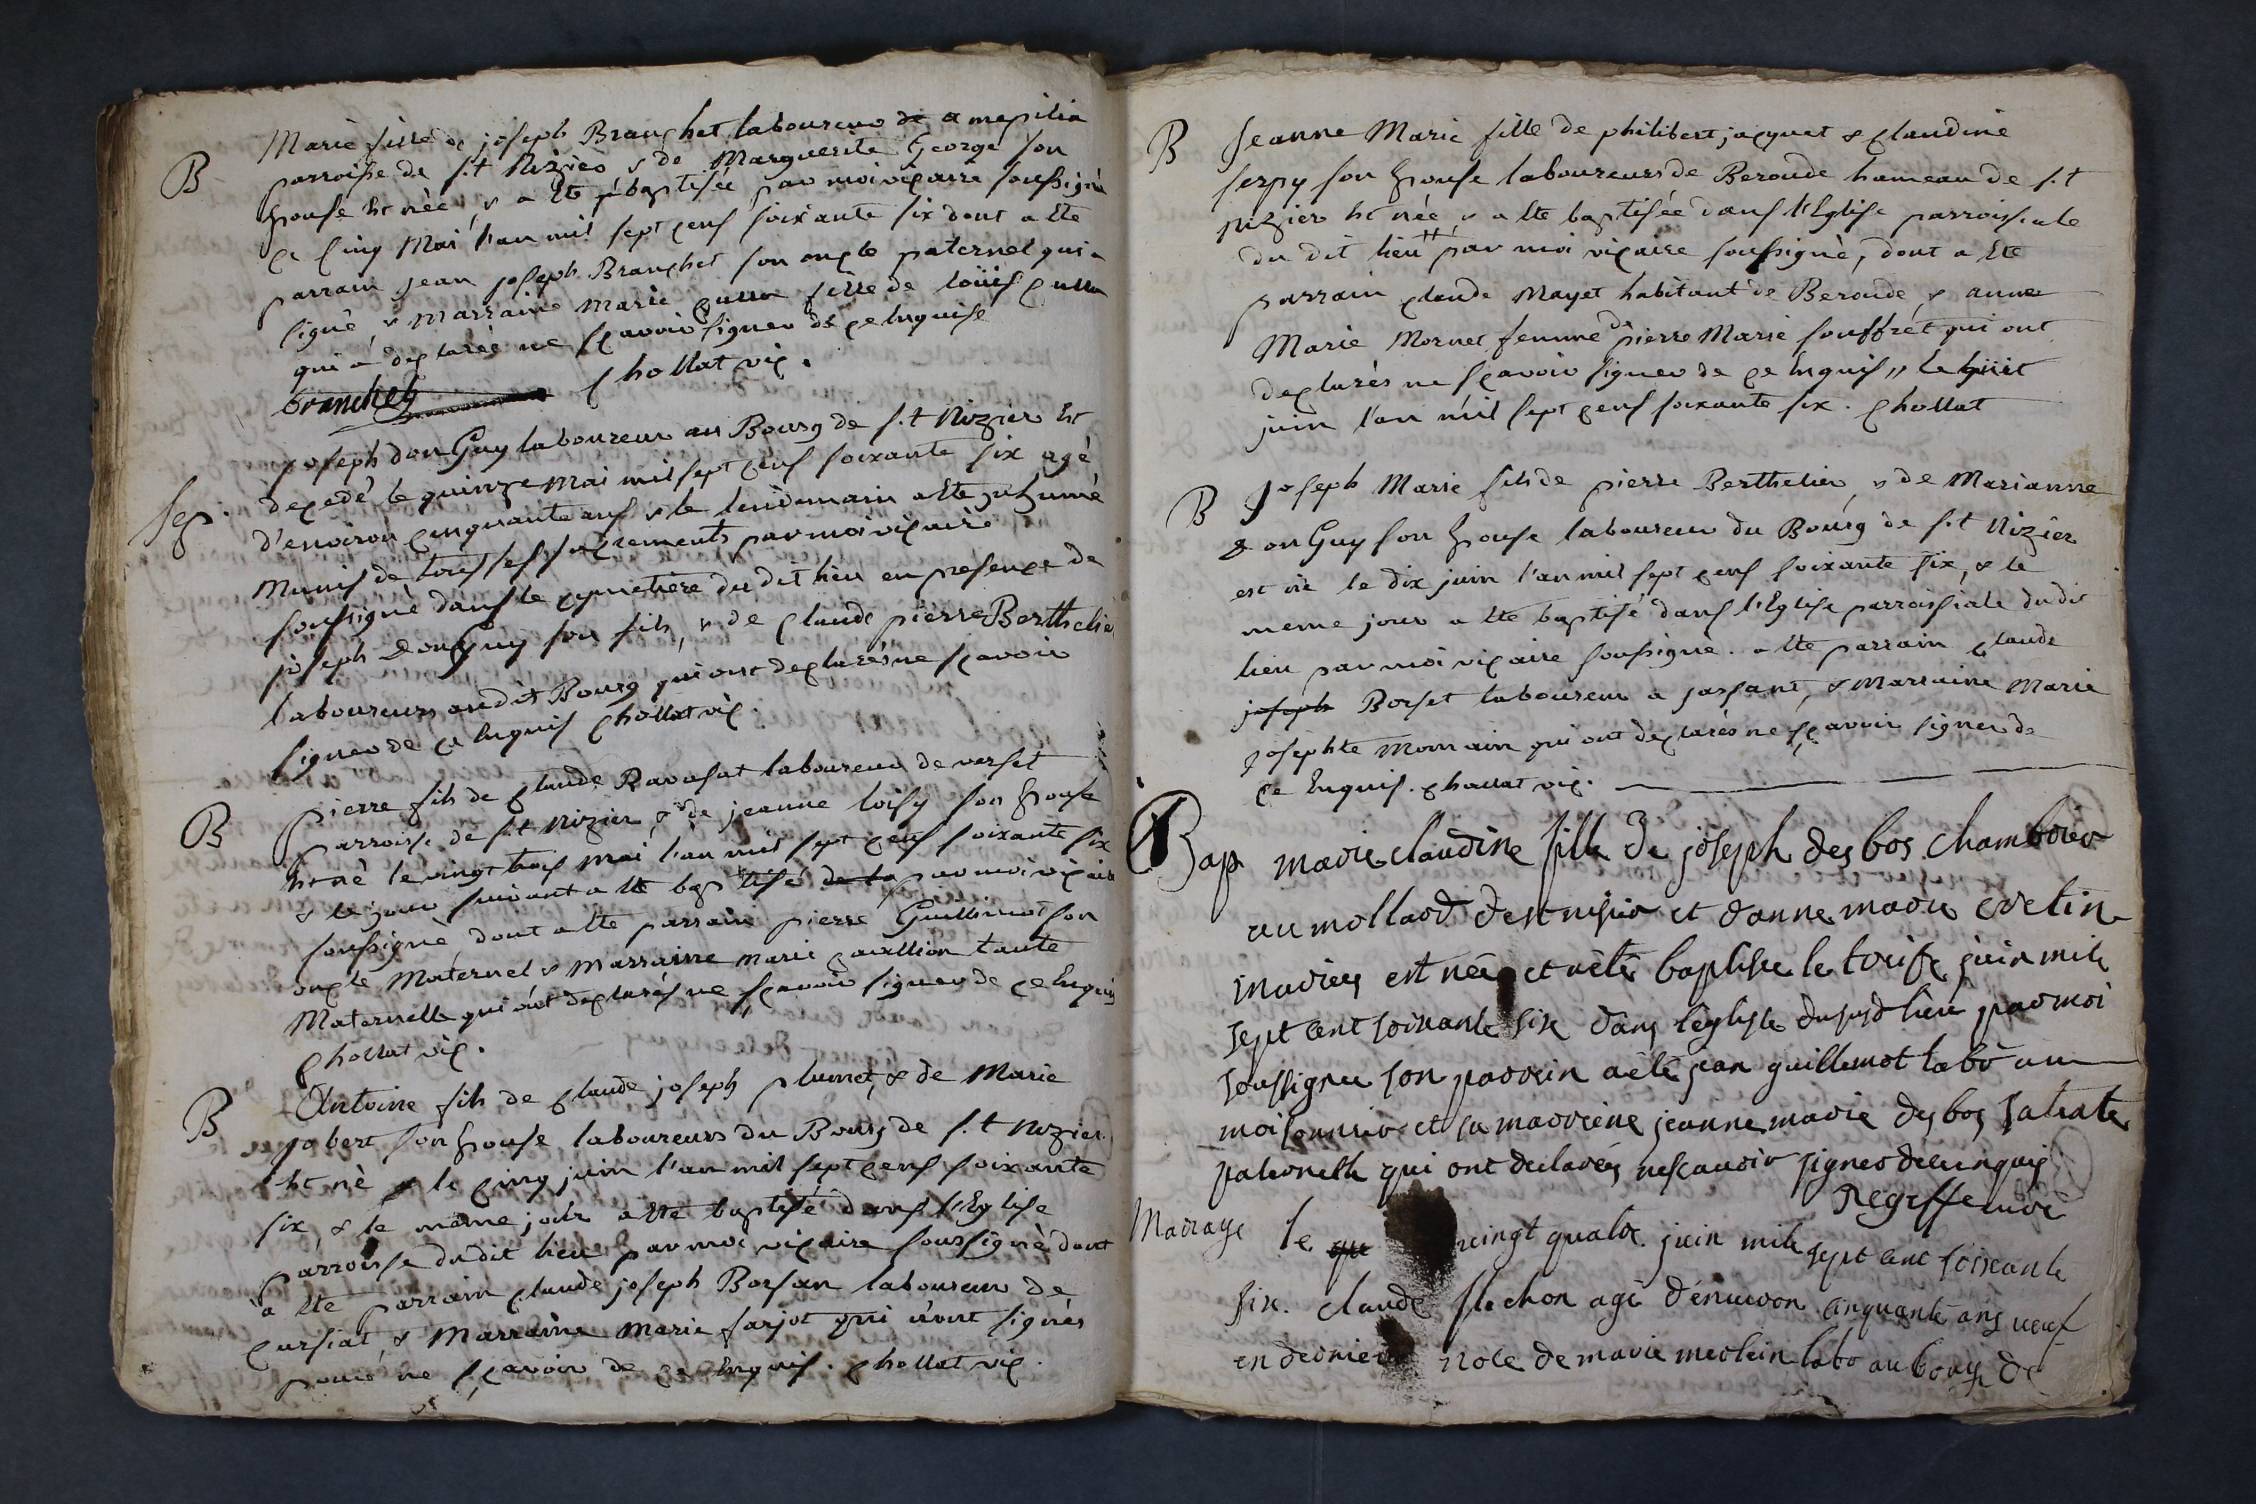 B Marie fille de joseph Branchet laboureur de a
parroisse de s.t Nizier & de Marguerite George son
Epouse Et née, & a Ete baptisée par moi vicaire soussigné
ce cinq Mai l'an mil sept cens soixante six dont a Ete
parrain jean joseph Branchet son oncle paternel qui a
signé, & marraine marie fille de loüis
qui a declarée ne sçavoir signer de ce Enquise
branchet chollat vic.
joseph don Guy laboureur au Bourg de s.t Nizier Et
Sep. decedé le quinze mai mil sept cens soixante six agé
d'environ cinquante ans & le lendemain a Ete inhumé
Munis de tous ses sacrements par moi vicaire
soussigné dans le cymetiere du dit lieu en presence de
joseph don Guy son fils, & de claude pierre Berthelier
laboureurs audit Bourg qui ont declarés ne sçavoir
signer de ce Enquis chollat vic.
B pierre fils de claude Ravasat laboureur de verset
parroisse de s.t Nizier & de jeanne loisy son Epouse
Et né le vingt trois mai l'an mil sept cens soixante six
& le jour suivant a Ete baptisé de la par moi vicaire
soussigné dont a Ete parrain pierre Guillimot son
oncle Maternel & marraine marie cavillion tante
Maternelle qui ont declarés ne sçavoir signer de ce Enquis
chollat vic.
B Antoine fils de claude joseph plumet, & de Marie
jobert son Epouse laboureurs du Bourg de s.t Nizier
Et né & le cinq juin l'an mil sept cens soixante
six, & le meme jour a Ete baptisé dans l'Eglise
parroisse dudit lieu par moi vicaire soussigné dont
a Ete parrain claude joseph Borjan laboureur de
cursiat, & Marraine Marie farjot qui n'ont signés
pour ne sçavoir de ce Enquis. chollat vic.
B Jeanne Marie fille de philibert jacquet & claudine
serpy son Epouse laboureurs de Beroude hameau de s.t
Nizier Et née & a Ete baptisée dans l'Eglise parroissiale
du dit lieu par moi vicaire soussigné, dont a Ete
parrain claude Mayet habitant de Beroude, & anne
Marie Mornet femme de pierre Marie souffrét qui ont
declarés ne sçavoir signer de ce Enquis, le huit
juin l'an mil sept cens soixante six. chollat
B joseph Marie fils de pierre Berthelier, & de Marianne
don Guy son Epouse laboureur du Bourg de s.t Nizier
est né le dix juin l'an mil sept cens soixante six, & le
meme jour a Ete baptisé dans l'Eglise parroissiale du dit
lieu par moi vicaire soussigné. a Ete parrain claude
joseph Borset laboureur a & Marraine Marie
josephte Momain qui ont declarés ne sçavoir signer de
ce Enquis. chollat vic.
Bap marie claudine fille de joseph desbos chambrier
au mollard de st nisier et danne marie
mariés est née et a été baptisée le treise juin mil
sept cent soixante six dans l'église du susd lieu par moi
soussigner son parrein a été jean guillemot labo au
et sa marreine jeanne marie desbos sa tante
paternelle qui ont declarés ne scavoir signer de ce enquis
curé
Mariage le que vingt quatre juin mil sept cent soixante
six. claude flechon agé d'environ cinquante ans veuf
en derniere noce de marie merlein labo au bourg de